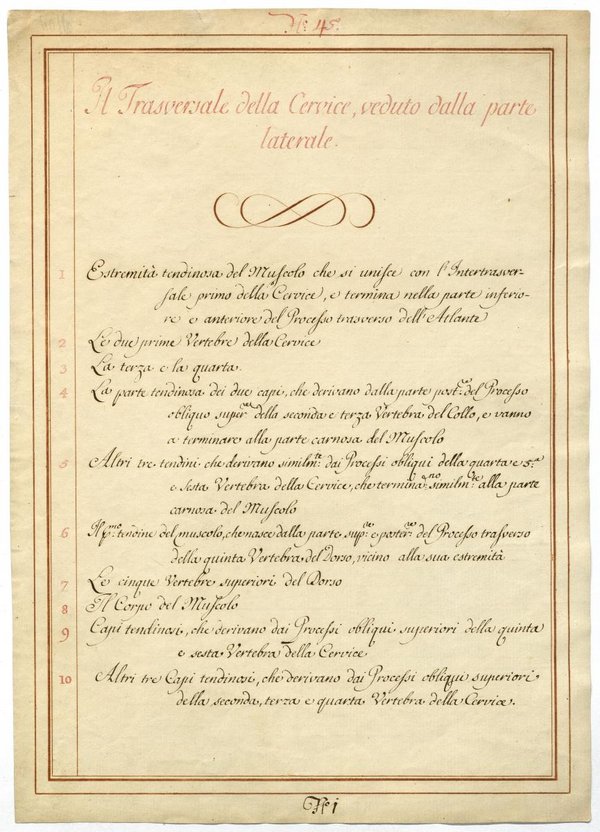 N.º 45.
Il Trasversale della Cervice, veduto dalla parte
laterale.
1 Estremità tendinosa del Muſcolo che si uniſce con l'Intertrasver-
ſale primo della Cervice, e termina nella parte inferio-
re e anteriore del Processo trasverso dell'Atlante
2 Le due prime Vertebre della Cervice
3 La terza e la quarta.
4 La parte tendinosa dei due capi, che derivano dalla parte post.re del Processo
obliquo super.re della seconda e terza Vertebra del Collo, e vanno
a terminare alla parte carnosa del Muſcolo
5 Altri tre tendini che derivano similm.te dai Processi obliqui della quarta e 5.a
e sesta Vertebra della Cervice, che termina.no similm.te alla parte
carnosa del Muſcolo
6 Il p.mo tendine del muscolo, che nasce dalla parte sup.re e poster.re del Processo traſverso
della quinta Vertebra del Dorso, vicino alla sua estremità
7 Le cinque Vertebre superiori del Dorso
8 Il Corpo del Muſcolo
9 Capi tendinosi, che derivano dai Processi obliqui superiori della quinta
e sesta Vertebra della Cervice
10 Altri tre Capi tendinosi, che derivano dai Processi obliqui superiori
della seconda, terza e quarta Vertebra della Cervice.